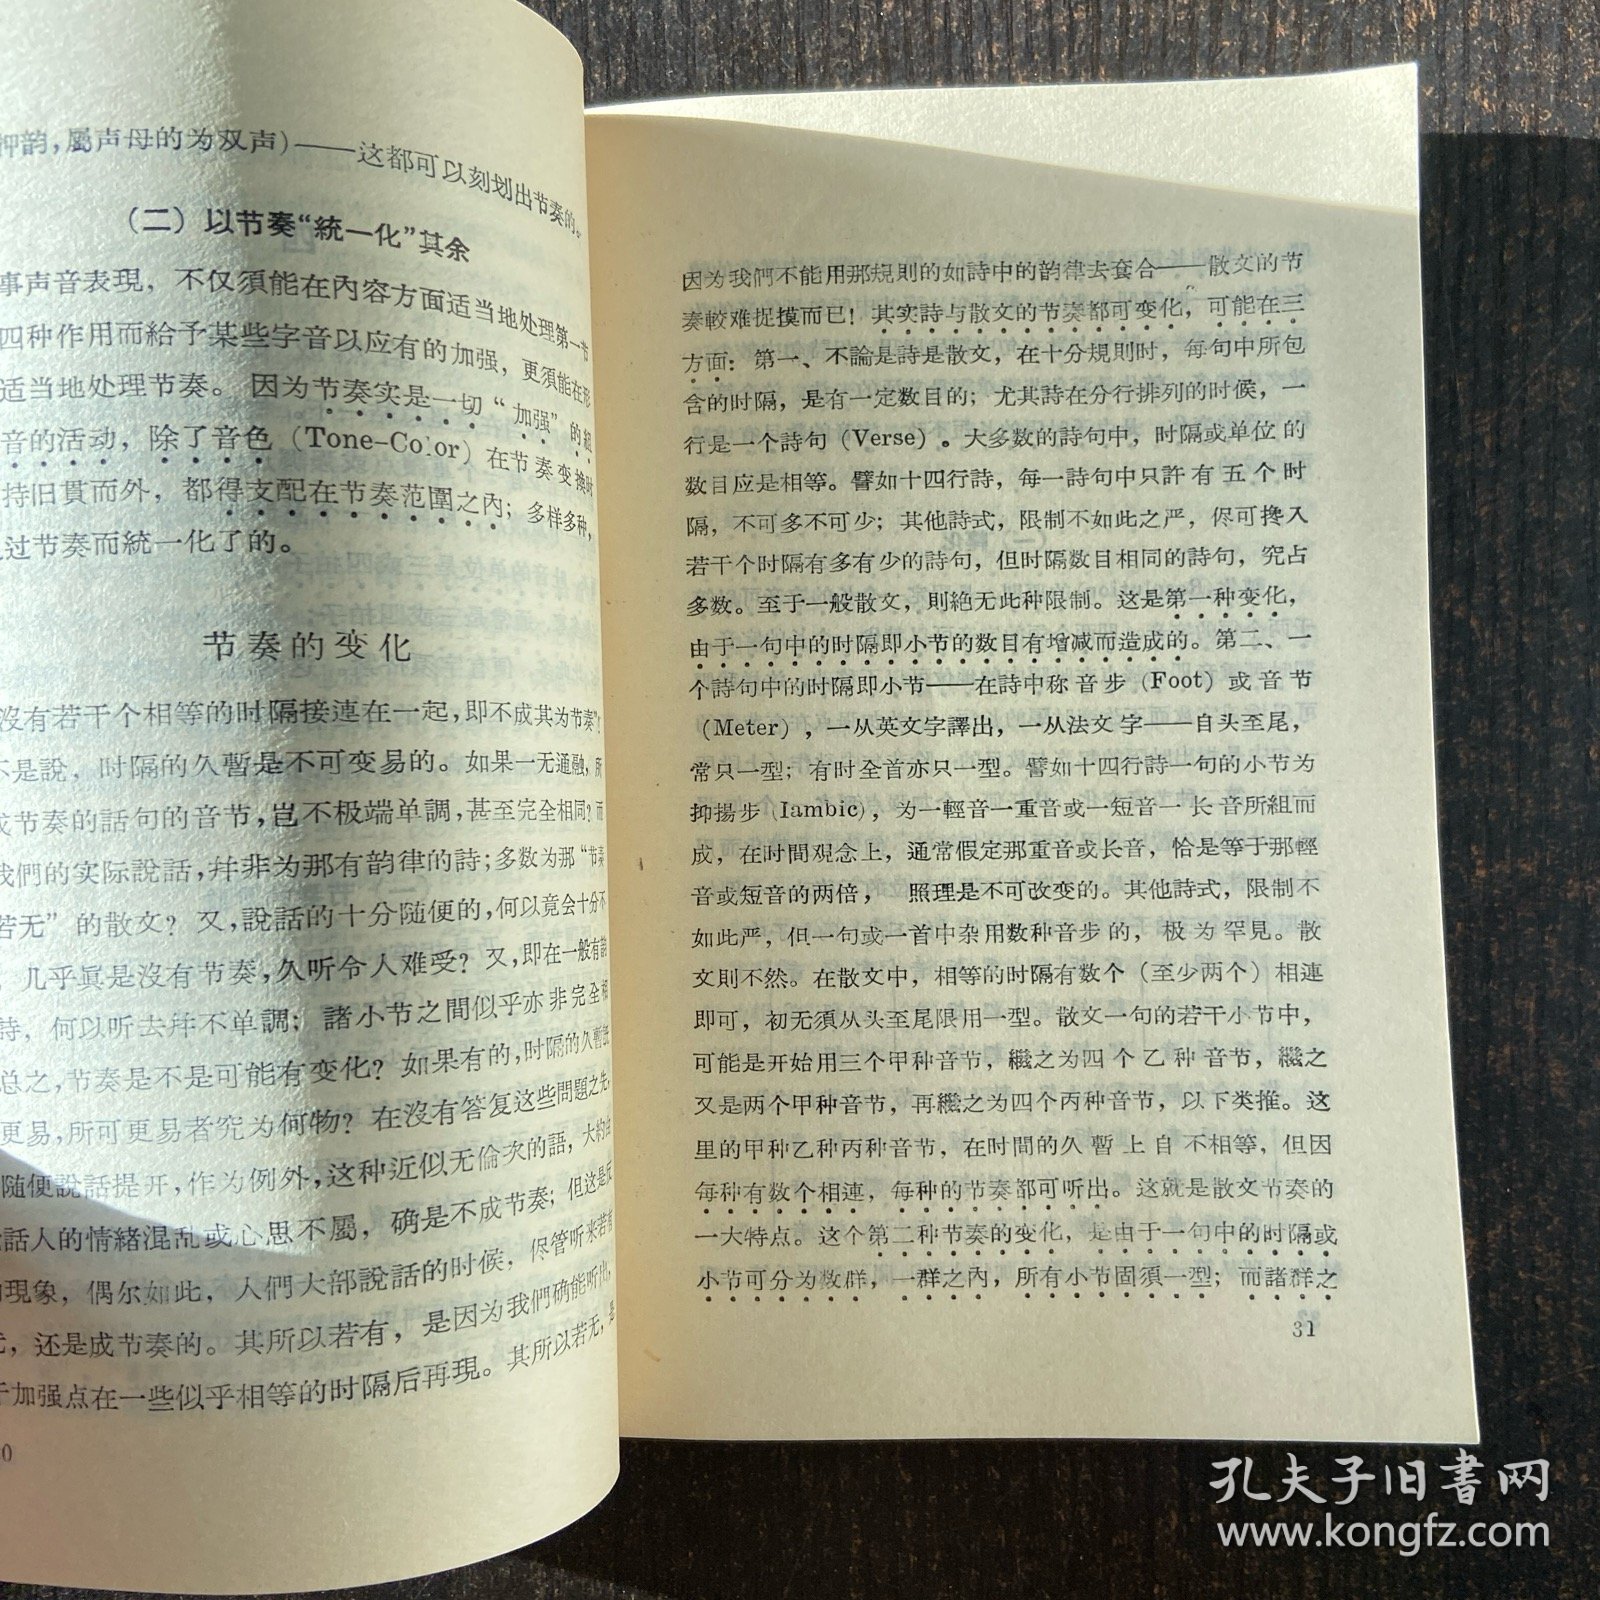 押韵，屬声母的为双声)——这都可以刻划出节奏的。
（二）以节奏“統一化”其余
事声音表現，不仅須能在內容方面适当地处理第一节
四种作用而給予某些字音以应有的加强，更須能在形
适当地处理节奏。因为节奏实是一切“加强”的組
音的活动，除了音色（Tone-Color）在节奏变換时
持旧貫而外，都得支配在节奏范圍之內；多样多种，
过节奏而統一化了的。
节奏的变化
沒有若干个相等的时隔接連在一起，即不成其为节奏”
不是說，时隔的久暫是不可变易的。如果一无通融，所
成节奏的話句的音节，豈不极端单調，甚至完全相同？而
我們的实际說話，幷非为那有韵律的詩；多数为那“节奏
若无”的散文？又，說話的十分随便的，何以竟会十分不
，几乎眞是沒有节奏，久听令人难受？又，即在一般有韵
詩，何以听去幷不单調；諸小节之間似乎亦非完全相
总之，节奏是不是可能有变化？如果有的，时隔的久暫
更易，所可更易者究为何物？在沒有答复这些問題之先，
随便說話提开，作为例外，这种近似无倫次的語，大約由
話人的情緒混乱或心思不屬，确是不成节奏；但这是反
現象，偶尔如此，人們大部說話的时候，尽管听来若有
，还是成节奏的。其所以若有，是因为我們确能听出，
于加强点在一些似乎相等的时隔后再現。其所以若无，是
0
因为我們不能用那規則的如詩中的韵律去套合——散文的节
奏較难捉摸而已！其实詩与散文的节奏都可变化，可能在三
方面：第一、不論是詩是散文，在十分規則时，每句中所包
含的时隔，是有一定数目的；尤其詩在分行排列的时候，一
行是一个詩句（Verse）。大多数的詩句中，时隔或单位的
数目应是相等。譬如十四行詩，每一詩句中只許有五个时
隔，不可多不可少；其他詩式，限制不如此之严，侭可搀入
若干个时隔有多有少的詩句，但时隔数目相同的詩句，究占
多数。至于一般散文，則絕无此种限制。这是第一种变化，
由于一句中的时隔即小节的数目有增减而造成的。第二、一
个詩句中的时隔即小节——在詩中称音步（Foot）或音节
（Meter），一从英文字譯出，一从法文字——自头至尾，
常只一型；有时全首亦只一型。譬如十四行詩一句的小节为
抑揚步（Iambic），为一輕音一重音或一短音一长音所組而
成，在时間观念上，通常假定那重音或长音，恰是等于那輕
音或短音的两倍，照理是不可改变的。其他詩式，限制不
如此严，但一句或一首中杂用数种音步的，极为罕見。散
文則不然。在散文中，相等的时隔有数个（至少两个）相連
即可，初无須从头至尾限用一型。散文一句的若干小节中，
可能是开始用三个甲种音节，繼之为四个乙种音节，繼之
又是两个甲种音节，再繼之为四个丙种音节，以下类推。这
里的甲种乙种丙种音节，在时間的久暫上自不相等，但因
每种有数个相連，每种的节奏都可听出。这就是散文节奏的
一大特点。这个第二种节奏的变化，是由于一句中的时隔或
小节可分为数群，一群之內，所有小节固須一型；而諸群之
31
孔夫子旧書网
www.kongfz.com